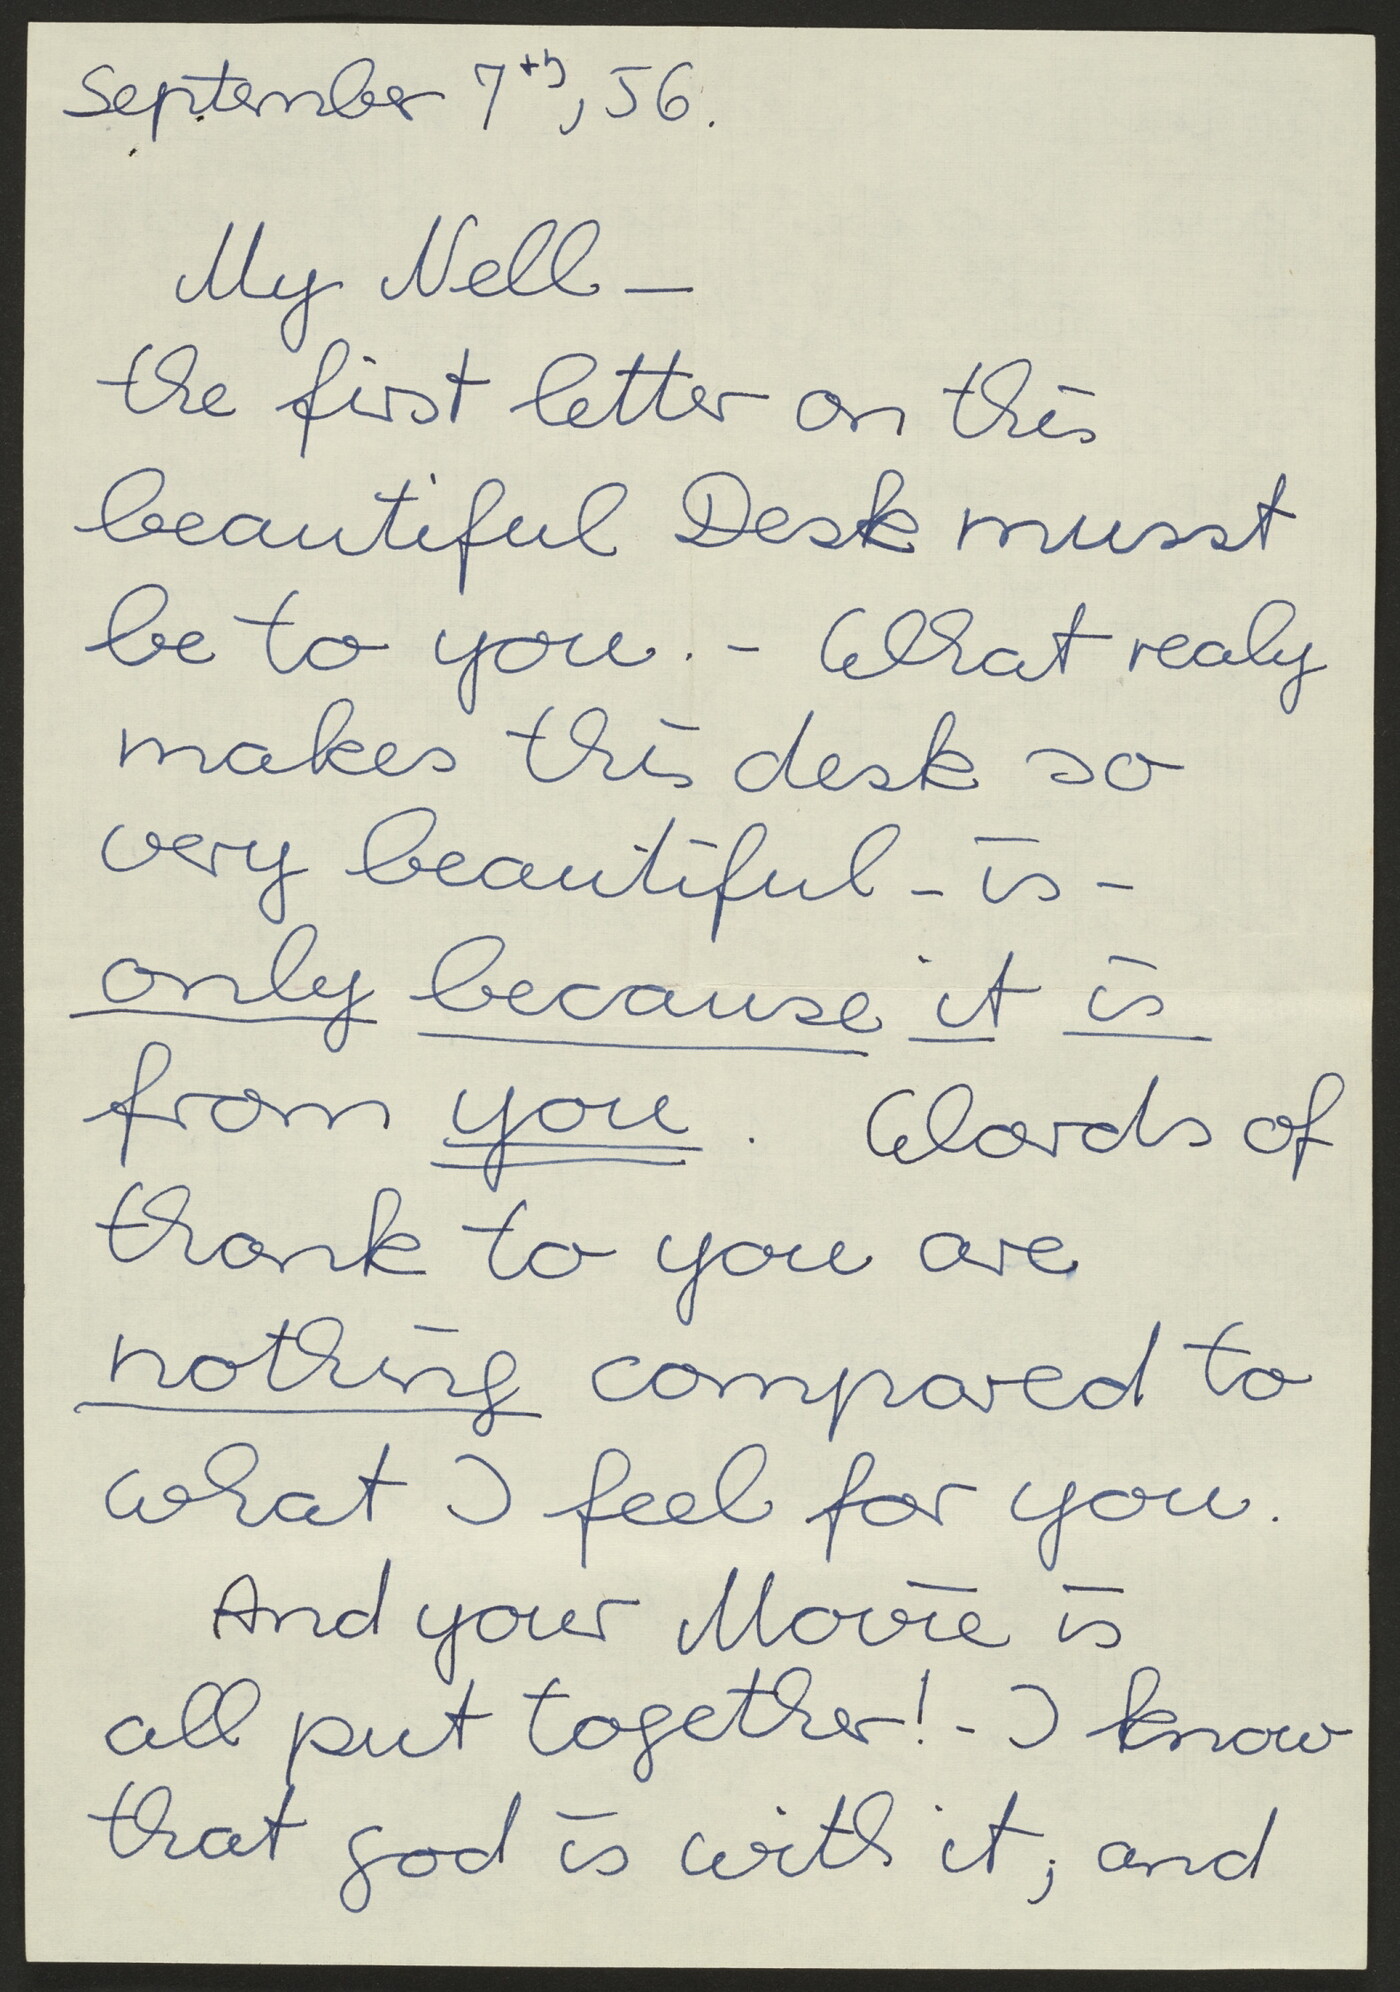 September 7th, 56.
My Nell —
the first letter on this
beautiful Desk musst
be to you. - What realy
makes this desk so
very beautiful - is -
only because it is
from you. Words of
thank to you are
nothing compared to
what I feel for you.
And your Movie is
all put together! - I know
that god is with it, and